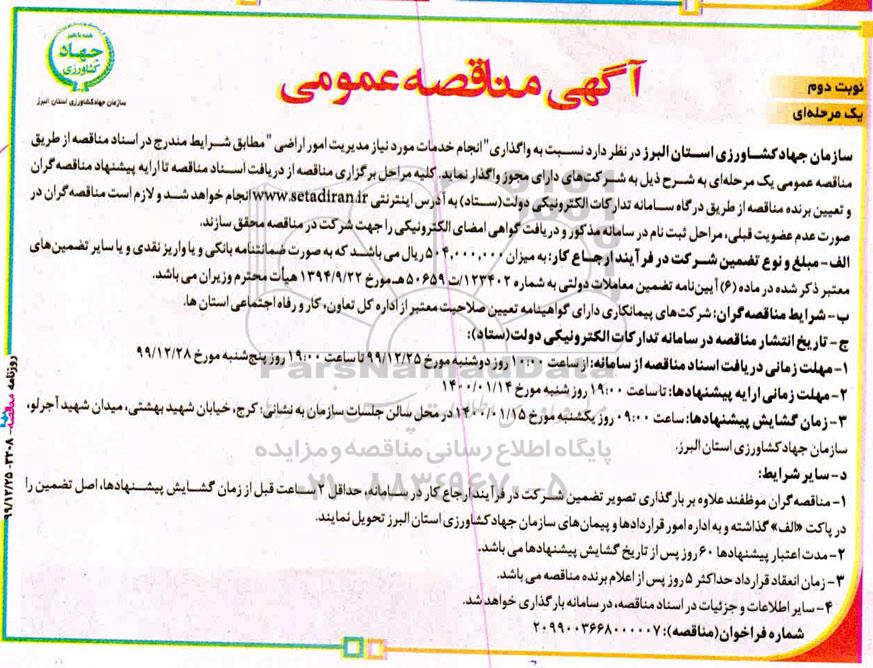 همه با هم
جهاد
کشاورزی
سازمان جهاد کشاورزی استان البرز
آگهی مناقصه عمومی
نوبت دوم
یک مرحله‌ای
سازمان جهاد کشـاورزی اسـتان البرز در نظر دارد نسـبت به واگذاری "انجام خدمات مورد نیاز مدیریت امور اراضی" مطابق شـرایط مندرج در اسناد مناقصه از طریق
مناقصه عمومی یک مرحله‌ای به شـرح ذیل به شـرکت‌های دارای مجوز واگذار نماید. کلیه مراحل برگزاری مناقصه از دریافت اسـناد مناقصه تا ارایه پیشنهاد مناقصه‌گران
و تعیین برنده مناقصه از طریق درگاه سـامانه تدارکات الکترونیکی دولت(سـتاد) به آدرس اینترنتی www.setadiran.ir انجام خواهد شـد و لازم است مناقصه‌گران در
صورت عدم عضویت قبلی، مراحل ثبت نام در سامانه مذکور و دریافت گواهی امضای الکترونیکی را جهت شرکت در مناقصه محقق سازند.
الف- مبلغ و نوع تضمین شـرکت در فرآیند ارجـاع کار: به میزان ۵۰۴,۰۰۰,۰۰۰ ریال می باشـد که به صورت ضمانتنامه بانکی و یا واریز نقدی و یا سایر تضمین‌های
معتبر ذکر شده در ماده (۶) آیین‌نامه تضمین معاملات دولتی به شماره ۱۲۳۴۰۲/ت ۵۰۶۵۹هـ مورخ ۱۳۹۴/۹/۲۲ هیأت محترم وزیران می باشد.
ب- شرایط مناقصه‌گران: شرکت‌های پیمانکاری دارای گواهینامه تعیین صلاحیت معتبر از اداره کل تعاون، کار و رفاه اجتماعی استان ها.
ج- تاریخ انتشار مناقصه در سامانه تدارکات الکترونیکی دولت(ستاد):
۱- مهلت زمانی دریافت اسناد مناقصه از سامانه: از ساعت ۱۰:۰۰ روز دوشنبه مورخ ۹۹/۱۲/۲۵ تا ساعت ۱۹:۰۰ روز پنج‌شنبه مورخ ۹۹/۱۲/۲۸
۲- مهلت زمانی ارایه پیشنهادها: تا ساعت ۱۹:۰۰ روز شنبه مورخ ۱۴۰۰/۰۱/۱۴
۳- زمان گشایش پیشنهادها: ساعت ۰۹:۰۰ روز یکشنبه مورخ ۱۴۰۰/۰۱/۱۵ در محل سالن جلسات سازمان به نشانی: کرج، خیابان شهید بهشتی، میدان شهید آجرلو،
سازمان جهاد کشاورزی استان البرز.
د- سایر شرایط:
۱- مناقصه گران موظفند علاوه بر بارگذاری تصویر تضمین شـرکت در فرآیند ارجاع کار در سـامانه، حداقل ۲ سـاعت قبل از زمان گشـایش پیشـنهادها، اصل تضمین را
در پاکت «الف» گذاشته و به اداره امور قراردادها و پیمان‌های سازمان جهاد کشاورزی استان البرز تحویل نمایند.
۲- مدت اعتبار پیشنهادها ۶۰ روز پس از تاریخ گشایش پیشنهادها می باشد.
۳- زمان انعقاد قرارداد حداکثر ۵ روز پس از اعلام برنده مناقصه می باشد.
۴- سایر اطلاعات و جزئیات در اسناد مناقصه، در سامانه بارگذاری خواهد شد.
شماره فراخوان(مناقصه): ۲۰۹۹۰۰۳۶۶۸۰۰۰۰۰۷
روزنامه مناقصه - ۳۳۰۸ - ۹۹/۱۲/۲۵
ParsNamadData
پایگاه اطلاع رسانی مناقصه و مزایده
۰۲۱-۸۸۳۴۹۶۷۰-۵